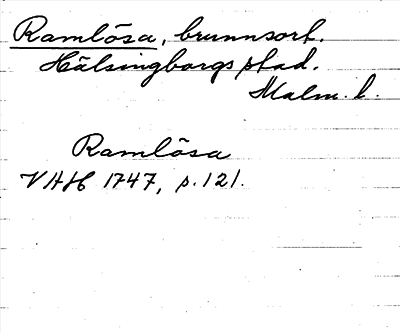 Ramlösa, brunnsort.
Hälsingborgs stad.
Malm. l.
Ramlösa
VAH 1747, p. 121.